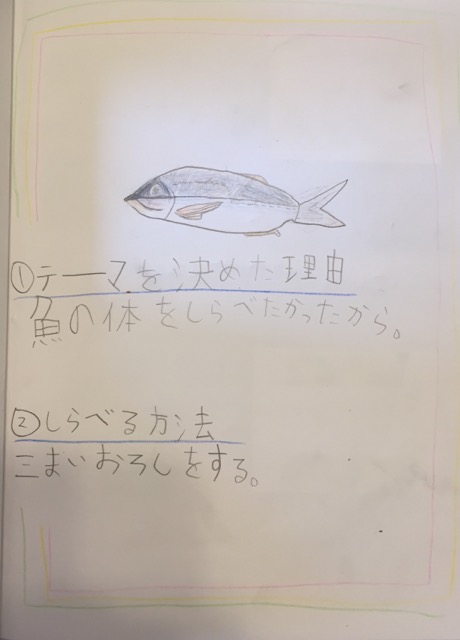 ①テーマを決めた理由
魚の体をしらべたかったから。
②しらべる方法
三まいおろしをする。